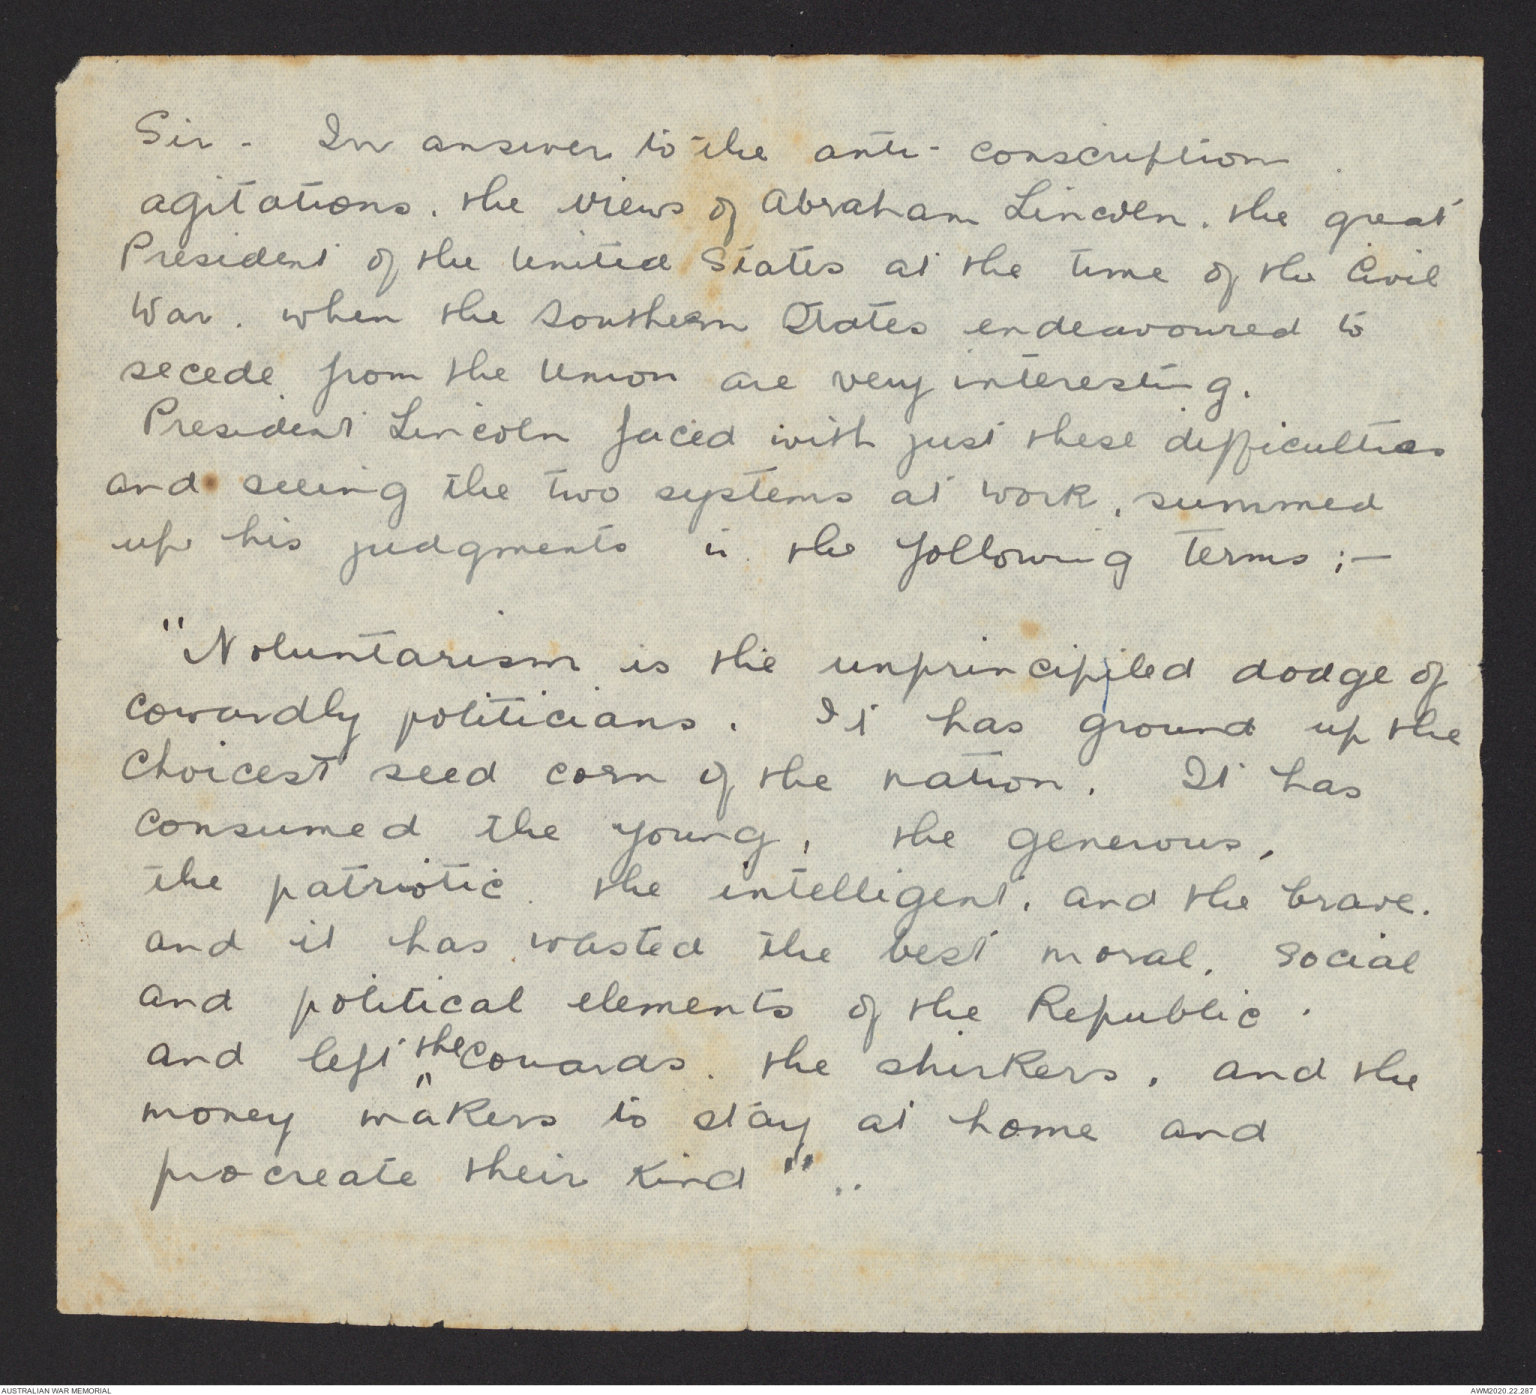 Sir - In answer to the anti-conscription
agitations, the views of Abraham Lincoln, the great
President of the United States at the time of the Civil
War, when the Southern States endeavoured to
secede from the Union are very interesting.
President Lincoln faced with just these difficulties
and seeing the two systems at work, summed
up his judgments in the following terms :-
"Voluntarism is the unprincipiled dodge of
cowardly politicians. It has ground up the
choicest seed corn of the nation. It has
consumed the young, the generous,
the patriotic, the intelligent, and the brave,
and it has wasted the best moral, social
and political elements of the Republic.
and left the cowards, the shirkers, and the
money makers to stay at home and
procreate their kind"..
AUSTRALIAN WAR MEMORIAL
AWM2020.22.287